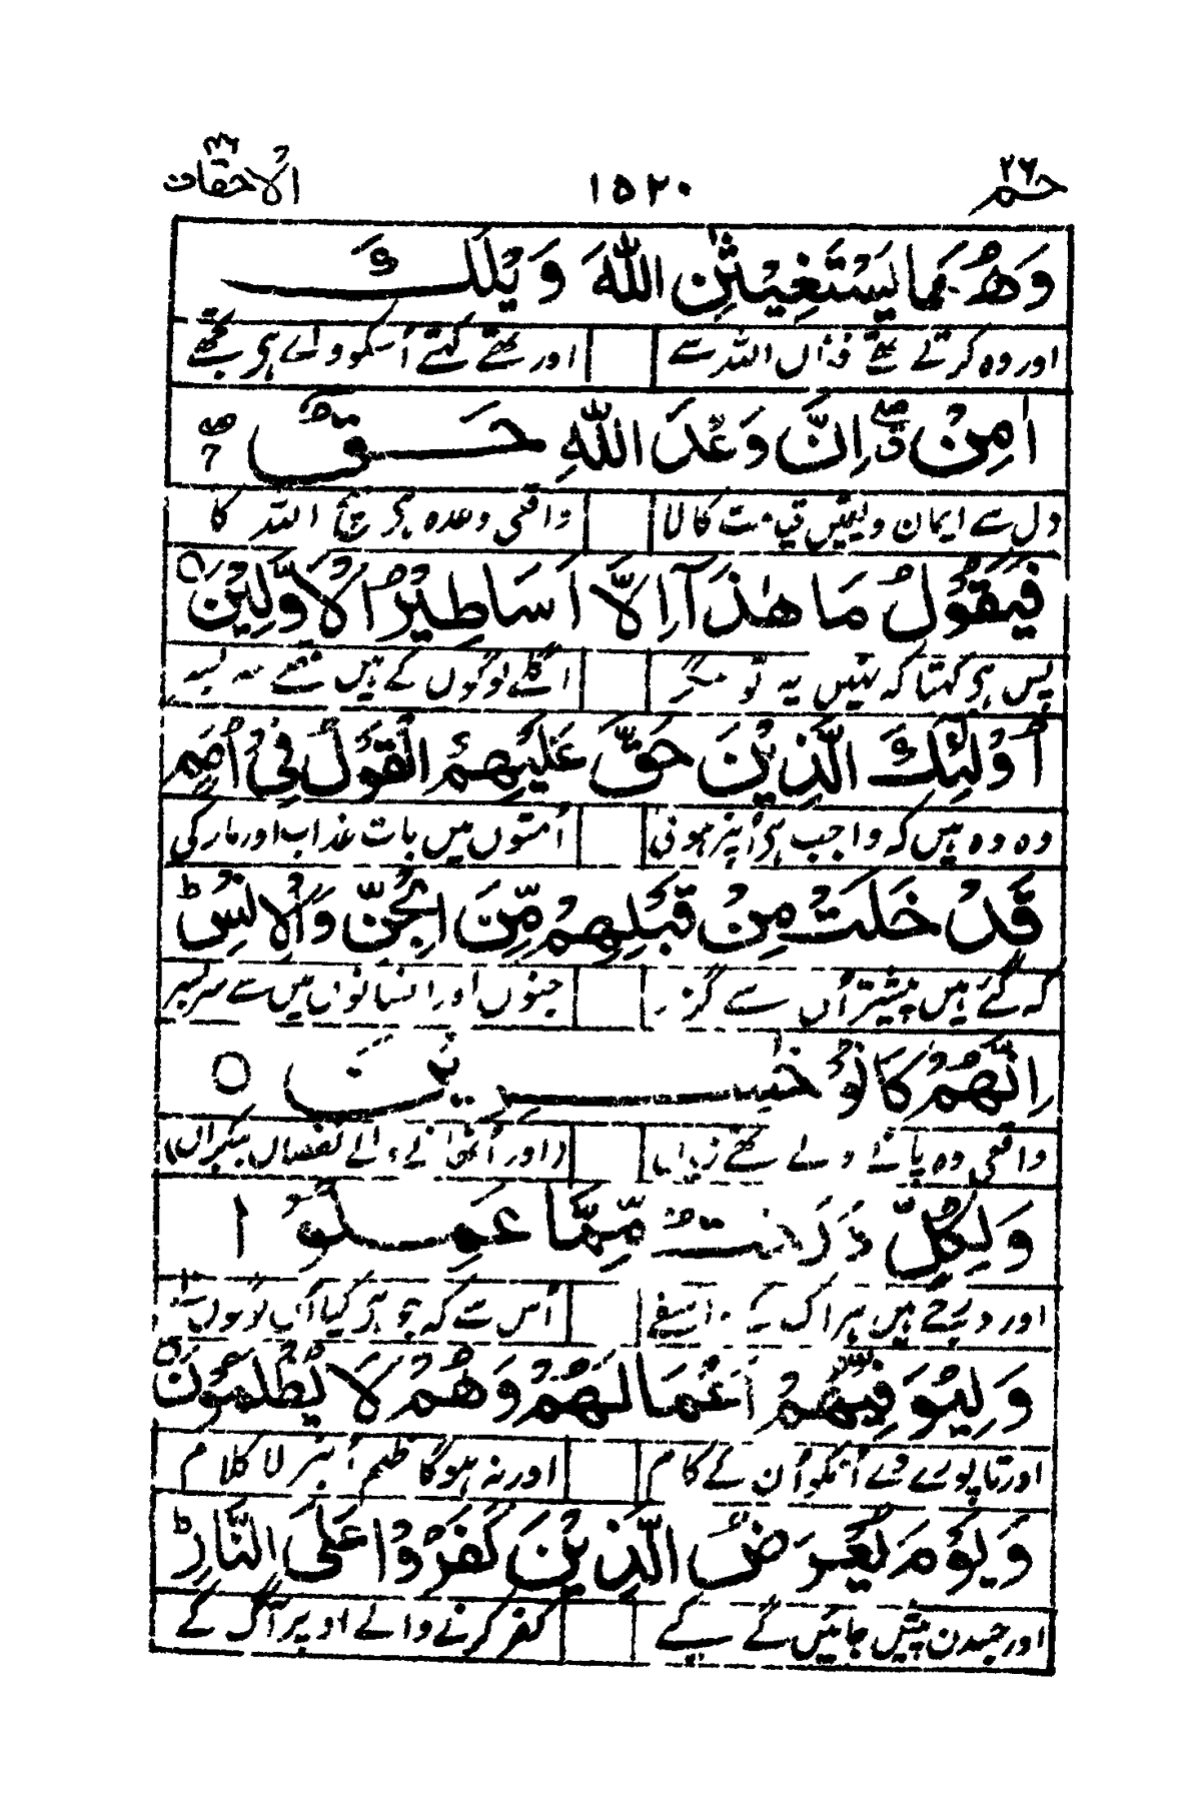 حٰمٓ ٢٦ ١٥٢٠ الاحقاف ٤٦
وَهُمَا يَسْتَغِيْثٰنِ اللّٰهَ وَيْلَكَ
اور وہ کرتے تھے فغاں اللہ سے اور تھے کہتے اُسکو وائے ہی تجھے
اٰمِنْ ۖ اِنَّ وَعْدَ اللّٰهِ حَقٌّ ۚ
دل سے ایمان و یقیں قیامت کا لا واقعی وعدہ ہی سچ اللہ کا
فَيَقُوْلُ مَا هٰذَآ اِلَّآ اَسَاطِيْرُ الْاَوَّلِيْنَ ○
پس ہی کہتا کہ نہیں یہ تو مگر اگلے لوگوں کے ہیں قصے سر بسر
اُولٰٓئِكَ الَّذِيْنَ حَقَّ عَلَيْهِمُ الْقَوْلُ فِيْٓ اُمَمٍ
وہ وہ ہیں کہ واجب ہی اُنپر ہوئی اُمتوں میں بات عذاب اور مار کی
قَدْ خَلَتْ مِنْ قَبْلِهِمْ مِّنَ الْجِنِّ وَالْاِنْسِ ؕ
کہ گئے ہیں پیشتر اُن سے گزر جنوں اور انسانوں میں سے سر بسر
اِنَّهُمْ كَانُوْا خٰسِرِيْنَ ○
واقعی وہ پانے والے تھے زیاں (اور اُٹھانے والے نقصاں بیکراں)
وَلِكُلٍّ دَرَجٰتٌ مِّمَّا عَمِلُوْا
اور درجے ہیں ہر اک کے واسطے اُس سے کہ جو ہی کیا اُن لوگوں نے
وَلِيُوَفِّيَهُمْ اَعْمَالَهُمْ وَهُمْ لَا يُظْلَمُوْنَ ○
اور تا پورے دے اُنکو اُن کے کام اور نہ ہوگا ظلم اُنپر لا کلام
وَيَوْمَ يُعْرَضُ الَّذِيْنَ كَفَرُوْا عَلَى النَّارِ ؕ
اور جسدن پیش جائیں گے کیے کفر کرنے والے اوپر آگ کے